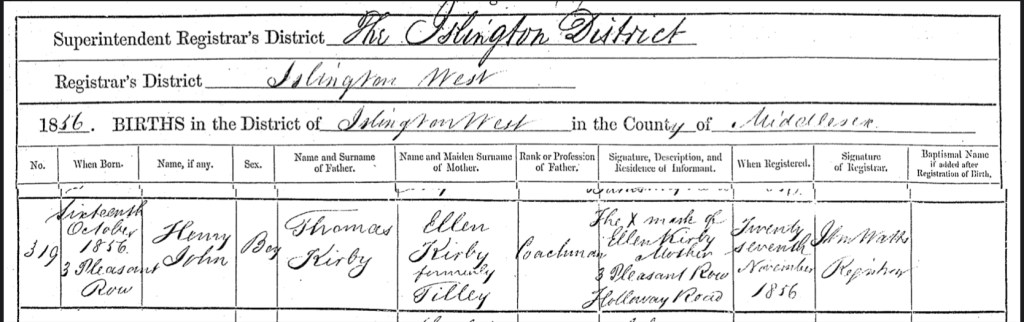 Superintendent Registrar's District The Islington District
Registrar's District Islington West
1856. BIRTHS in the District of Islington West in the County of Middlesex
No. When Born. Name, if any. Sex. Name and Surname of Father. Name and Maiden Surname of Mother. Rank or Profession of Father. Signature, Description, and Residence of Informant. When Registered. Signature of Registrar. Baptismal Name if added after Registration of Birth.
319
Sixteenth
October
1856.
3 Pleasant
Row
Henry
John
Boy
Thomas
Kirby
Ellen
Kirby
formerly
Tilley
Coachman
The X mark of
Ellen Kirby
Mother
3 Pleasant Row
Holloway Road
Twenty
seventh
November
1856
John Watts
Registrar